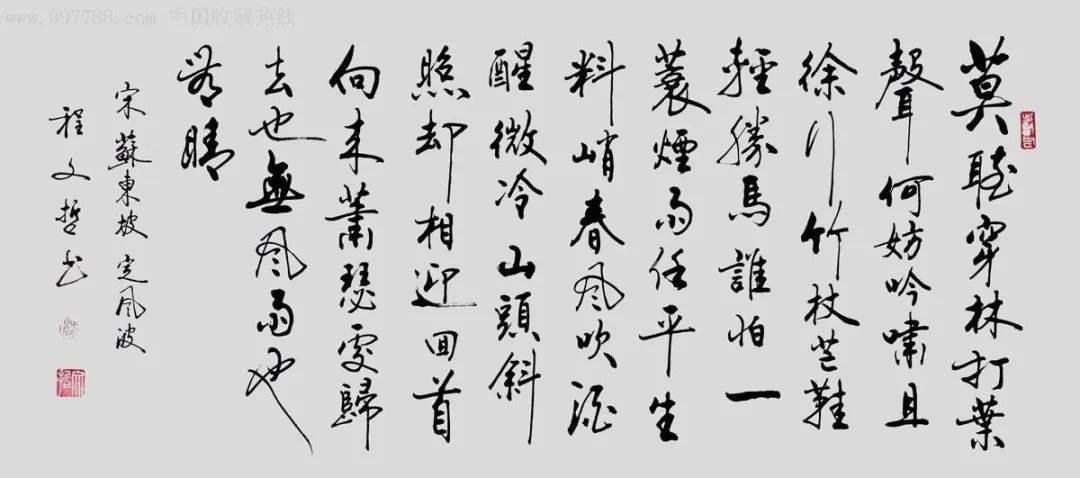 www.997788.com 中国收藏热线
莫聽穿林打葉
聲何妨吟嘯且
徐行竹杖芒鞋
輕勝馬誰怕一
蓑煙雨任平生
料峭春風吹酒
醒微冷山頭斜
照却相迎回首
向来蕭瑟處歸
去也無風雨也
無晴
宋蘇東坡定風波
程文哲书